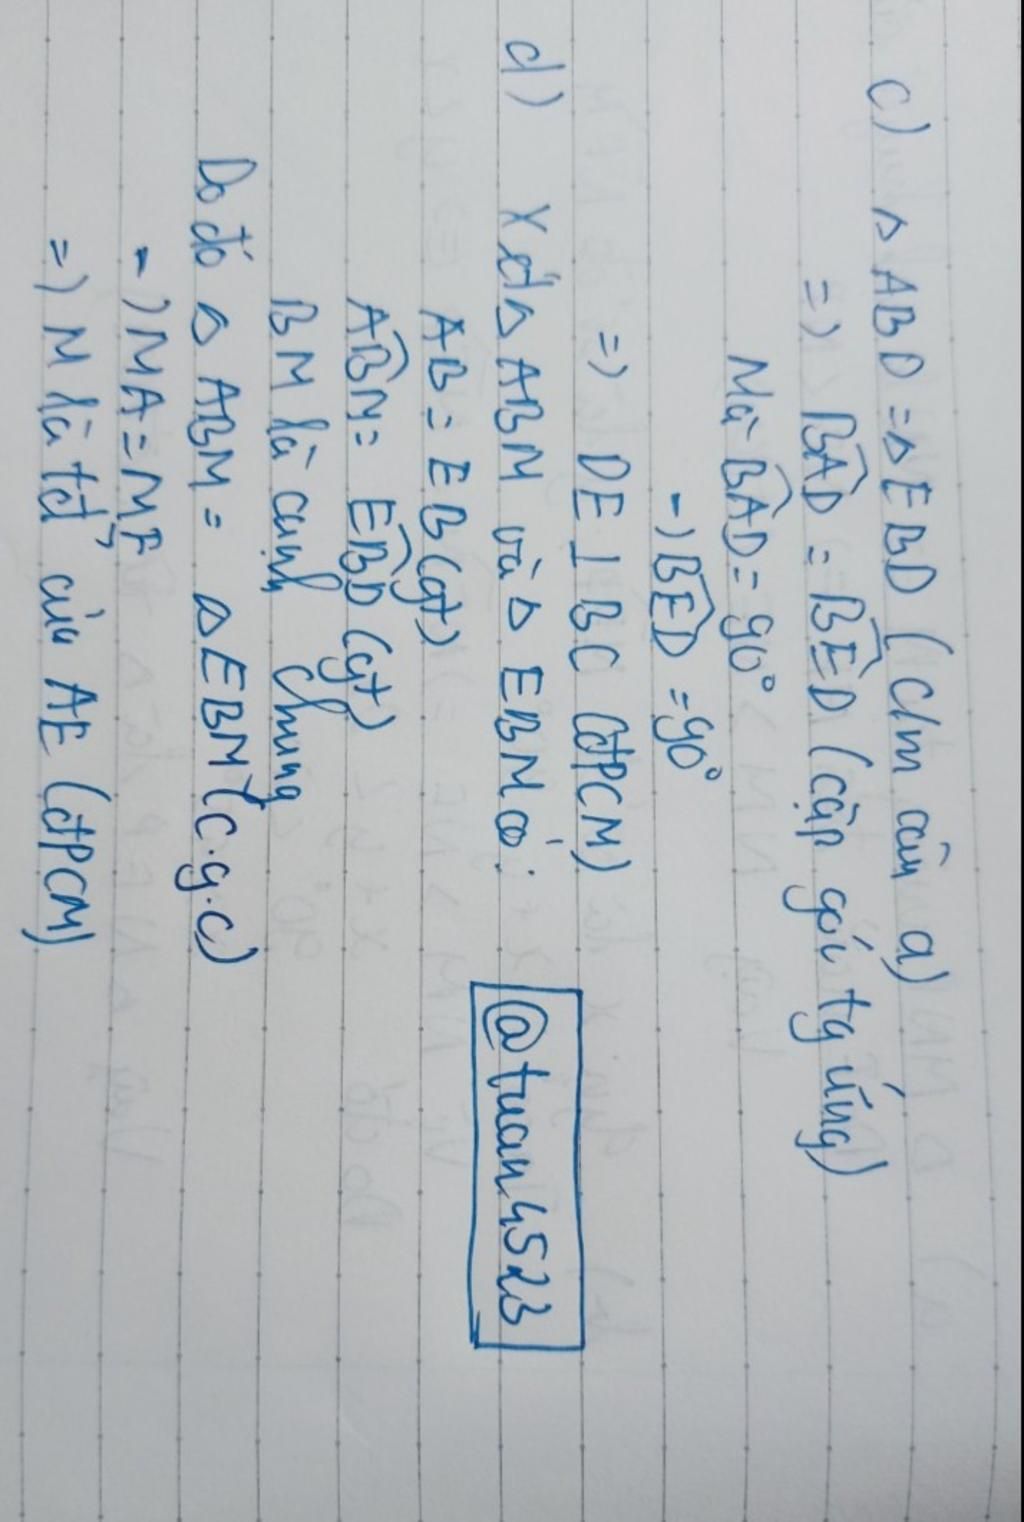 c) △ABD = △EBD (c/m câu a)
=) BAD̂ = BED̂ (cặp góc tg ứng)
Mà BAD̂ = 90°
-) BED̂ = 90°
=) DE ⊥ BC (đPCM)
d) Xét △ABM và △EBM có:
AB = EB (gt)
ABM̂ = EBD̂ (gt)
BM là cạnh chung
Do đó △ABM = △EBM (c.g.c)
-) MA = ME
=) M là tđ của AE (đPCM)
@tuan4523